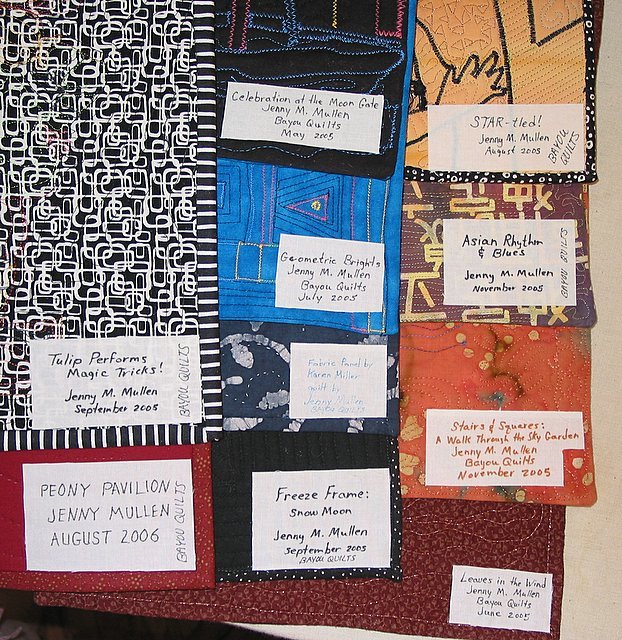 Celebration at the Moon Gate
Jenny M. Mullen
Bayou Quilts
May 2005
STAR-tled!
Jenny M. Mullen
August 2005
BAYOU QUILTS
Geometric Brights
Jenny M. Mullen
Bayou Quilts
July 2005
Asian Rhythm
& Blues
Jenny M. Mullen
November 2005
BAYOU QUILTS
Tulip Performs
Magic Tricks!
Jenny M. Mullen
September 2005
BAYOU QUILTS
Fabric Panel by
Karen Miller
quilt by
Jenny Mullen
BAYOU QUILTS
Stairs & Squares:
A Walk Through the Sky Garden
Jenny M. Mullen
Bayou Quilts
November 2005
PEONY PAVILION
JENNY MULLEN
AUGUST 2006
BAYOU QUILTS
Freeze Frame:
Snow Moon
Jenny M. Mullen
September 2005
BAYOU QUILTS
Leaves in the Wind
Jenny M. Mullen
Bayou Quilts
June 2005